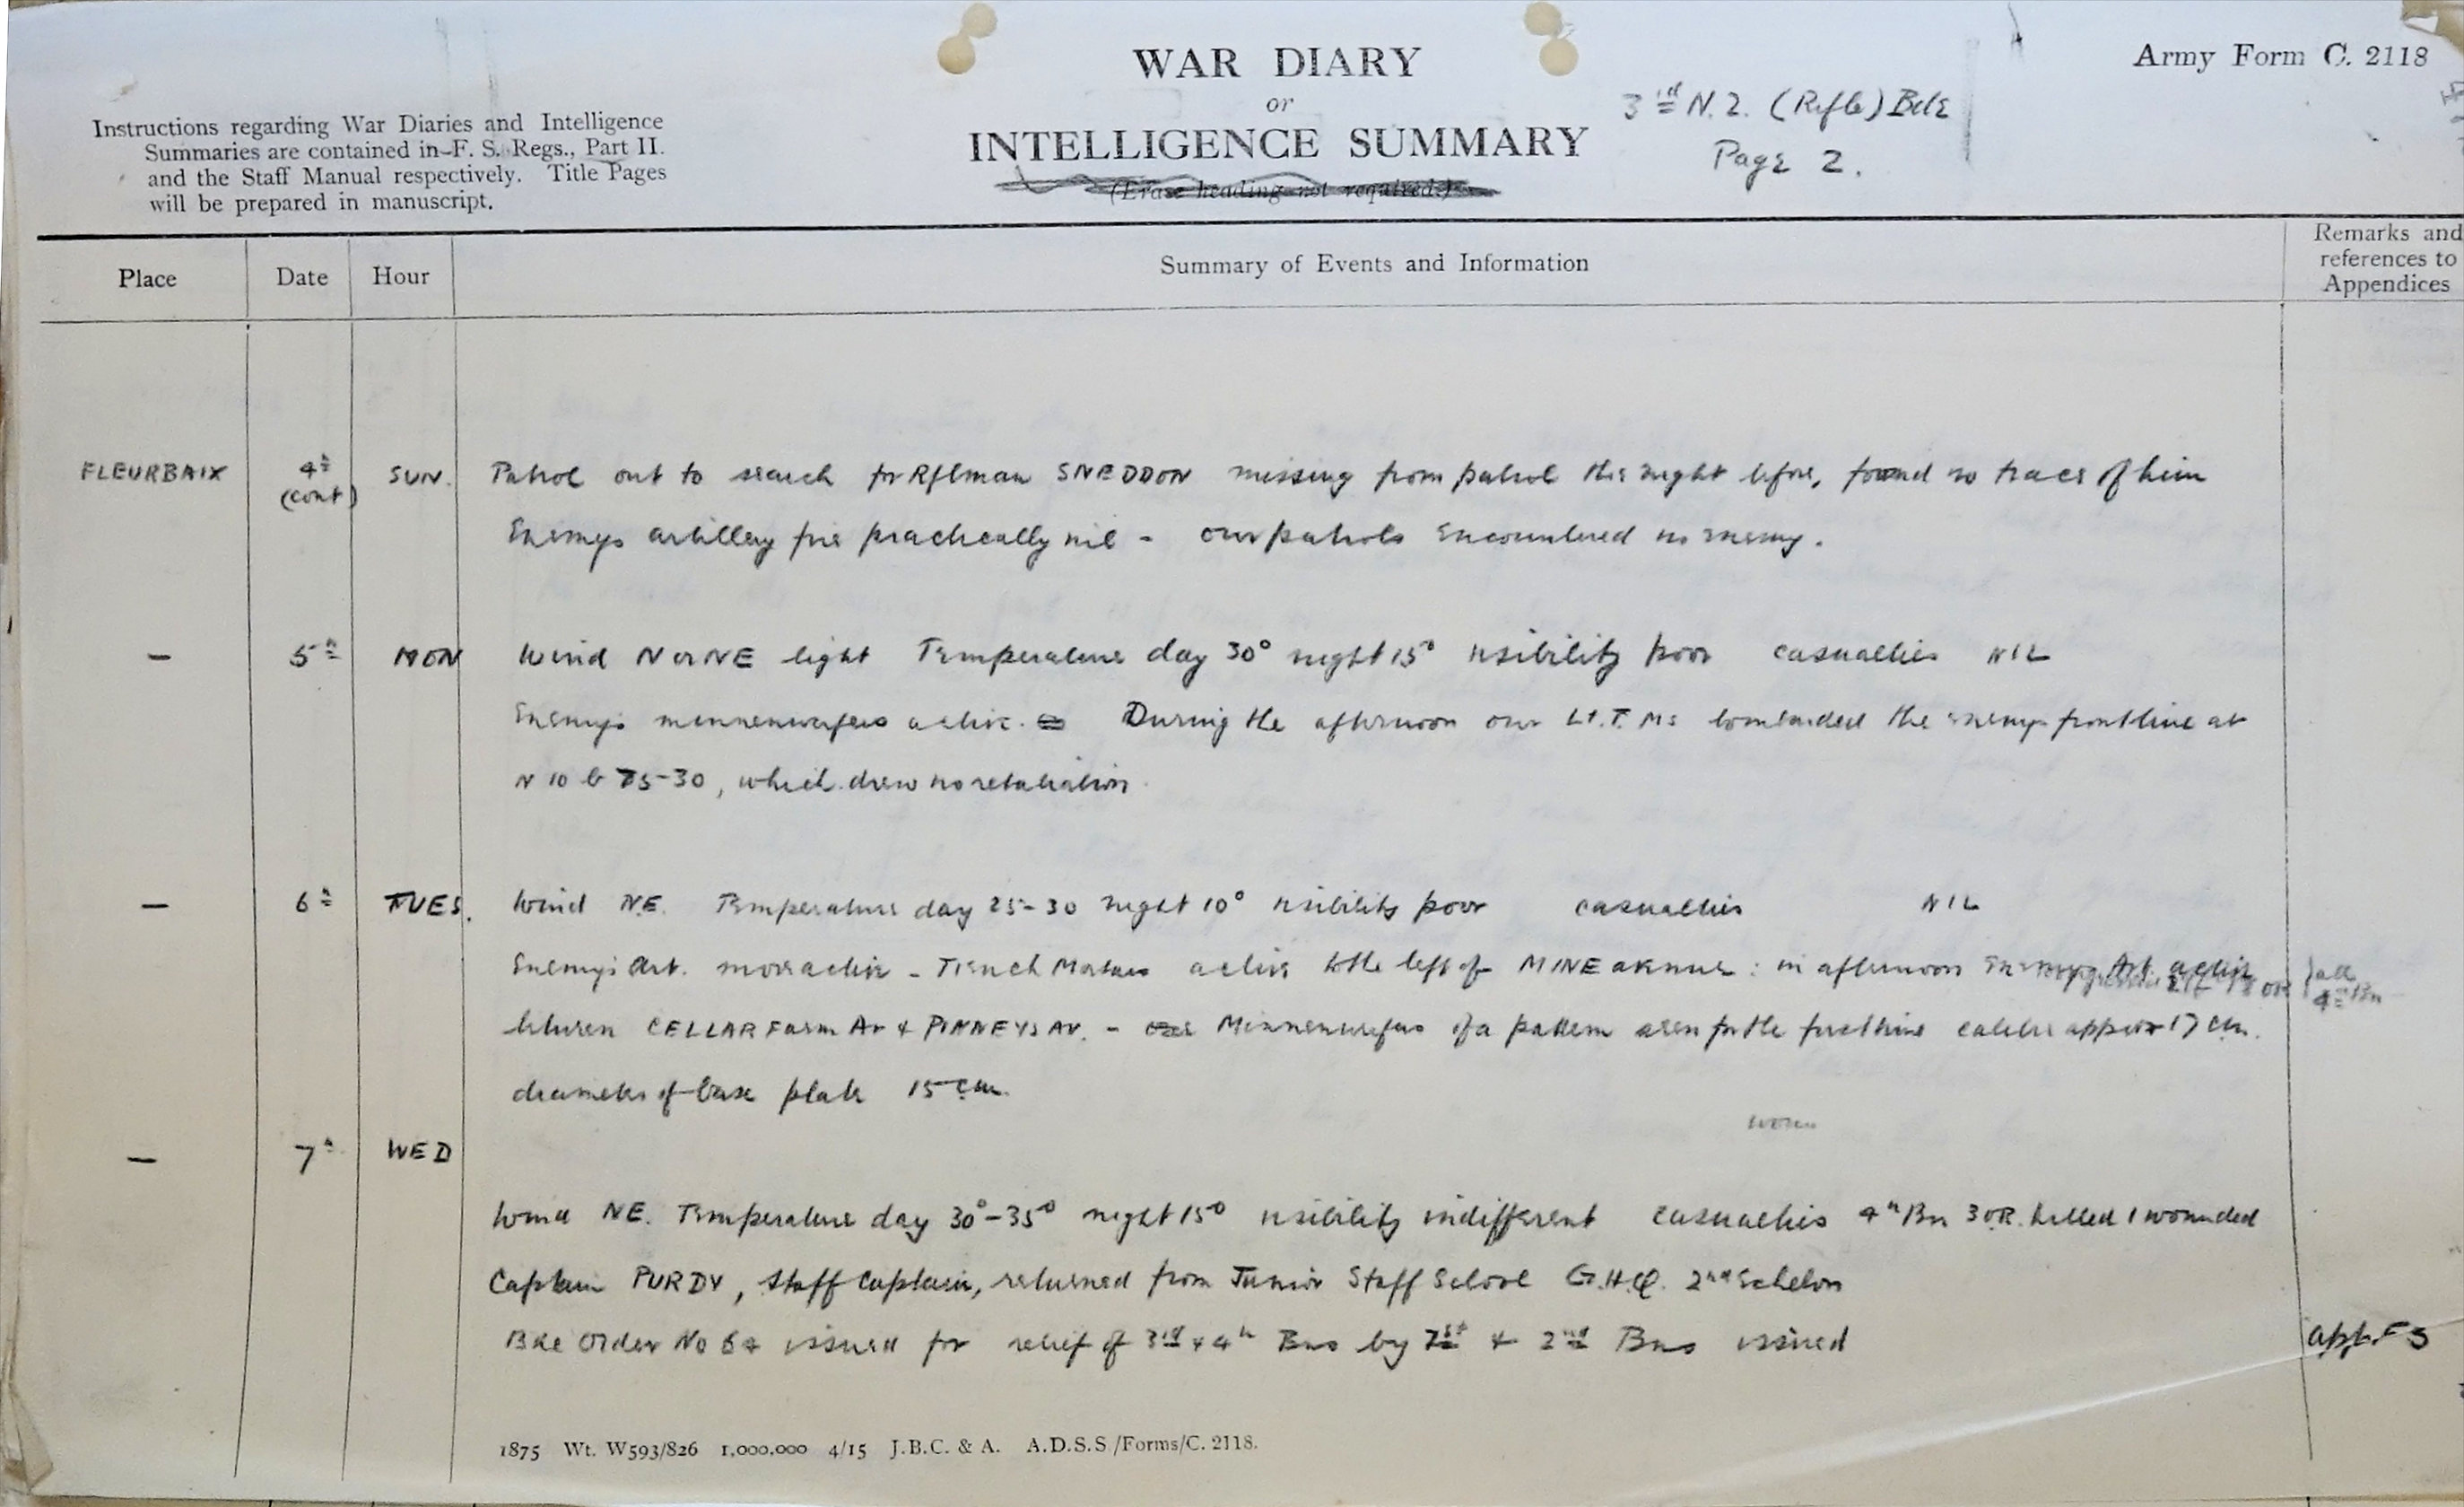 WAR DIARY
or
INTELLIGENCE SUMMARY
(Erase heading not required.)
Army Form C. 2118
3rd N.Z. (Rifle) Bde
Page 2.
Instructions regarding War Diaries and Intelligence
Summaries are contained in F. S. Regs., Part II.
and the Staff Manual respectively. Title Pages
will be prepared in manuscript.
Place Date Hour Summary of Events and Information Remarks and
references to
Appendices
FLEURBAIX 4th SUN. Patrol out to search for Rflman SNEDDON missing from patrol the night before, found no trace of him
(cont)
Enemys artillery fire practically nil - our patrols encountered no enemy.
— 5th MON Wind N or NE light Temperature day 30° night 15° visibility poor casualties NIL
Enemys minnenwerfers active. During the afternoon our Lt. T. Ms bombarded the enemy frontline at
N 10 b 75-30, which drew no retaliation
— 6th TUES. Wind N.E. Temperature day 25-30 night 10° visibility poor casualties NIL
Enemy's Art. more active - Trench Mortars active to the left of MINE avenue : in afternoon Enemys Art. active
between CELLAR Farm Av & PINNEYS AV. - Minnenwerfers of a pattern seen for the first time calibre approx 17 cm.
all
4th Bn
diameter of base plate 15 cm.
— 7th WED
Wind NE. Temperature day 30°-35° night 15° visibility indifferent casualties 4th Bn 3 O.R. killed 1 wounded
Captain PURDY, Staff Captain, returned from Junior Staff School G.H.Q. 2nd Echelon
Bde Order No issued for relief of 3rd & 4th Bns by 1st & 2nd Bns issued
1875 Wt. W593/826 1,000,000 4/15 J.B.C. & A. A.D.S.S./Forms/C. 2118.